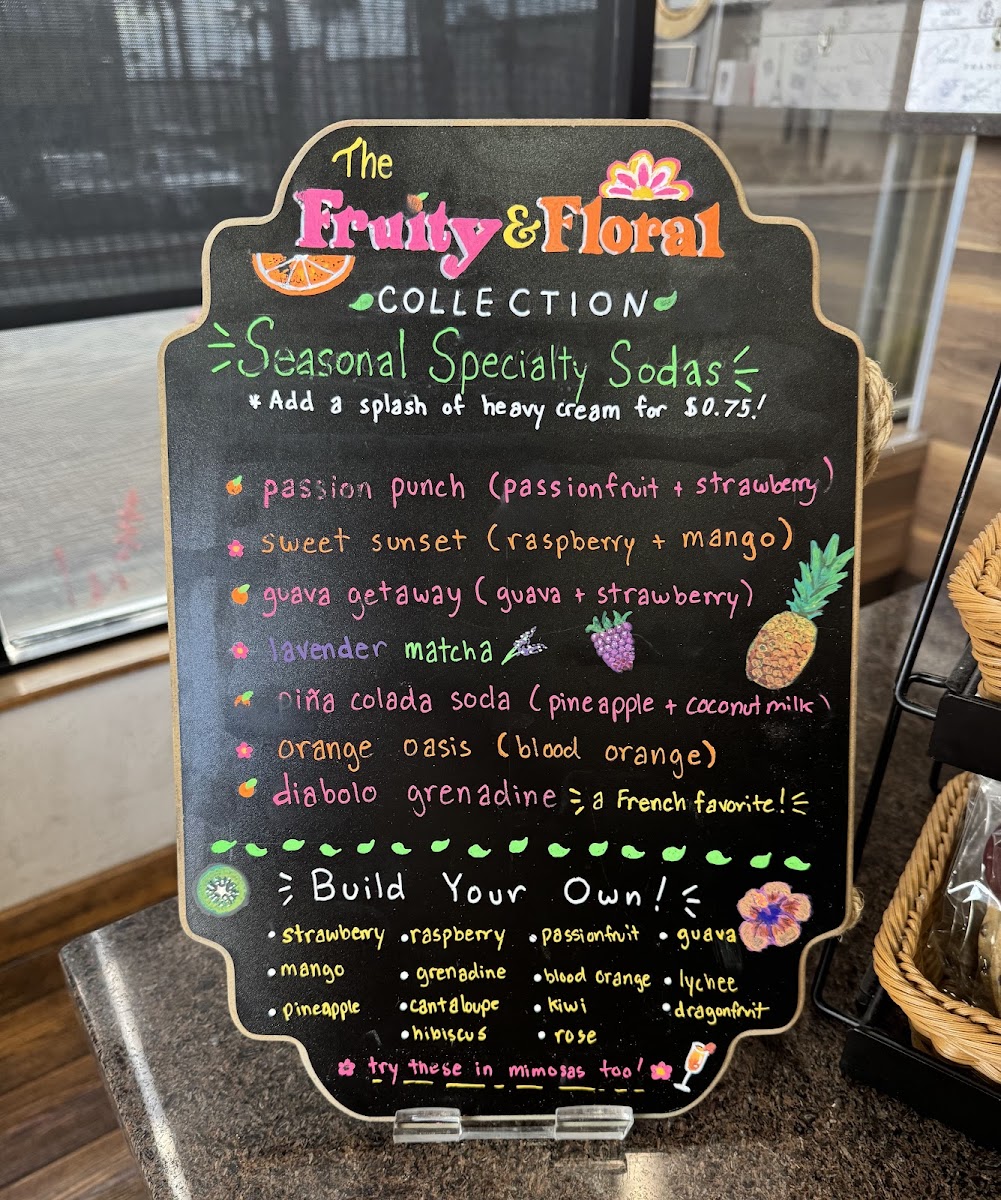 The
Fruity & Floral
COLLECTION
Seasonal Specialty Sodas
* Add a splash of heavy cream for $0.75!
passion punch (passionfruit + strawberry)
sweet sunset (raspberry + mango)
guava getaway (guava + strawberry)
lavender matcha
piña colada soda (pineapple + coconut milk)
orange oasis (blood orange)
diabolo grenadine a French favorite!
Build Your Own!
• strawberry • raspberry • passionfruit • guava
• mango • grenadine • blood orange • lychee
• pineapple • cantaloupe • kiwi • dragonfruit
• hibiscus • rose
try these in mimosas too!